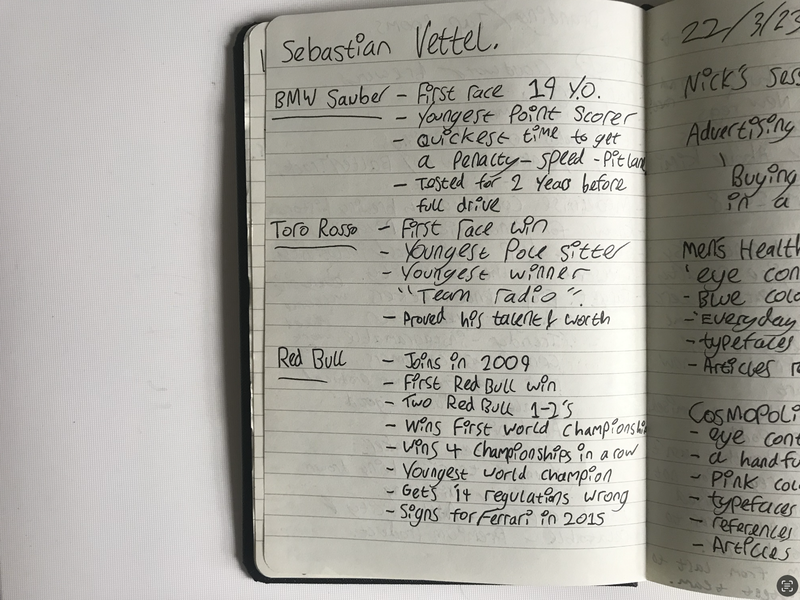 Sebastian Vettel.
BMW Sauber - First race 19 Y.O.
- Youngest Point Scorer
- Quickest time to get
a Penalty - Speed - Pitlane
- Tested for 2 Years before
full drive
Toro Rosso - First race win
- Youngest Pole sitter
- Youngest winner
"Team radio".
- Proved his talent & worth
Red Bull - Joins in 2009
- First Red Bull win
- Two Red Bull 1-2's
- Wins First world championship
- Wins 4 Championships in a row
- Youngest world champion
- Gets '14 regulations wrong
- Signs for Ferrari in 2015
22/3/23
Nick's Sess
Advertising
' Buying
in a
Men's Health
'eye con
- Blue colo
-'Everyday
- typefaces
- Articles r
Cosmopoli
- eye cont
- a handfu
- Pink colo
- typefaces
- references
- Articles